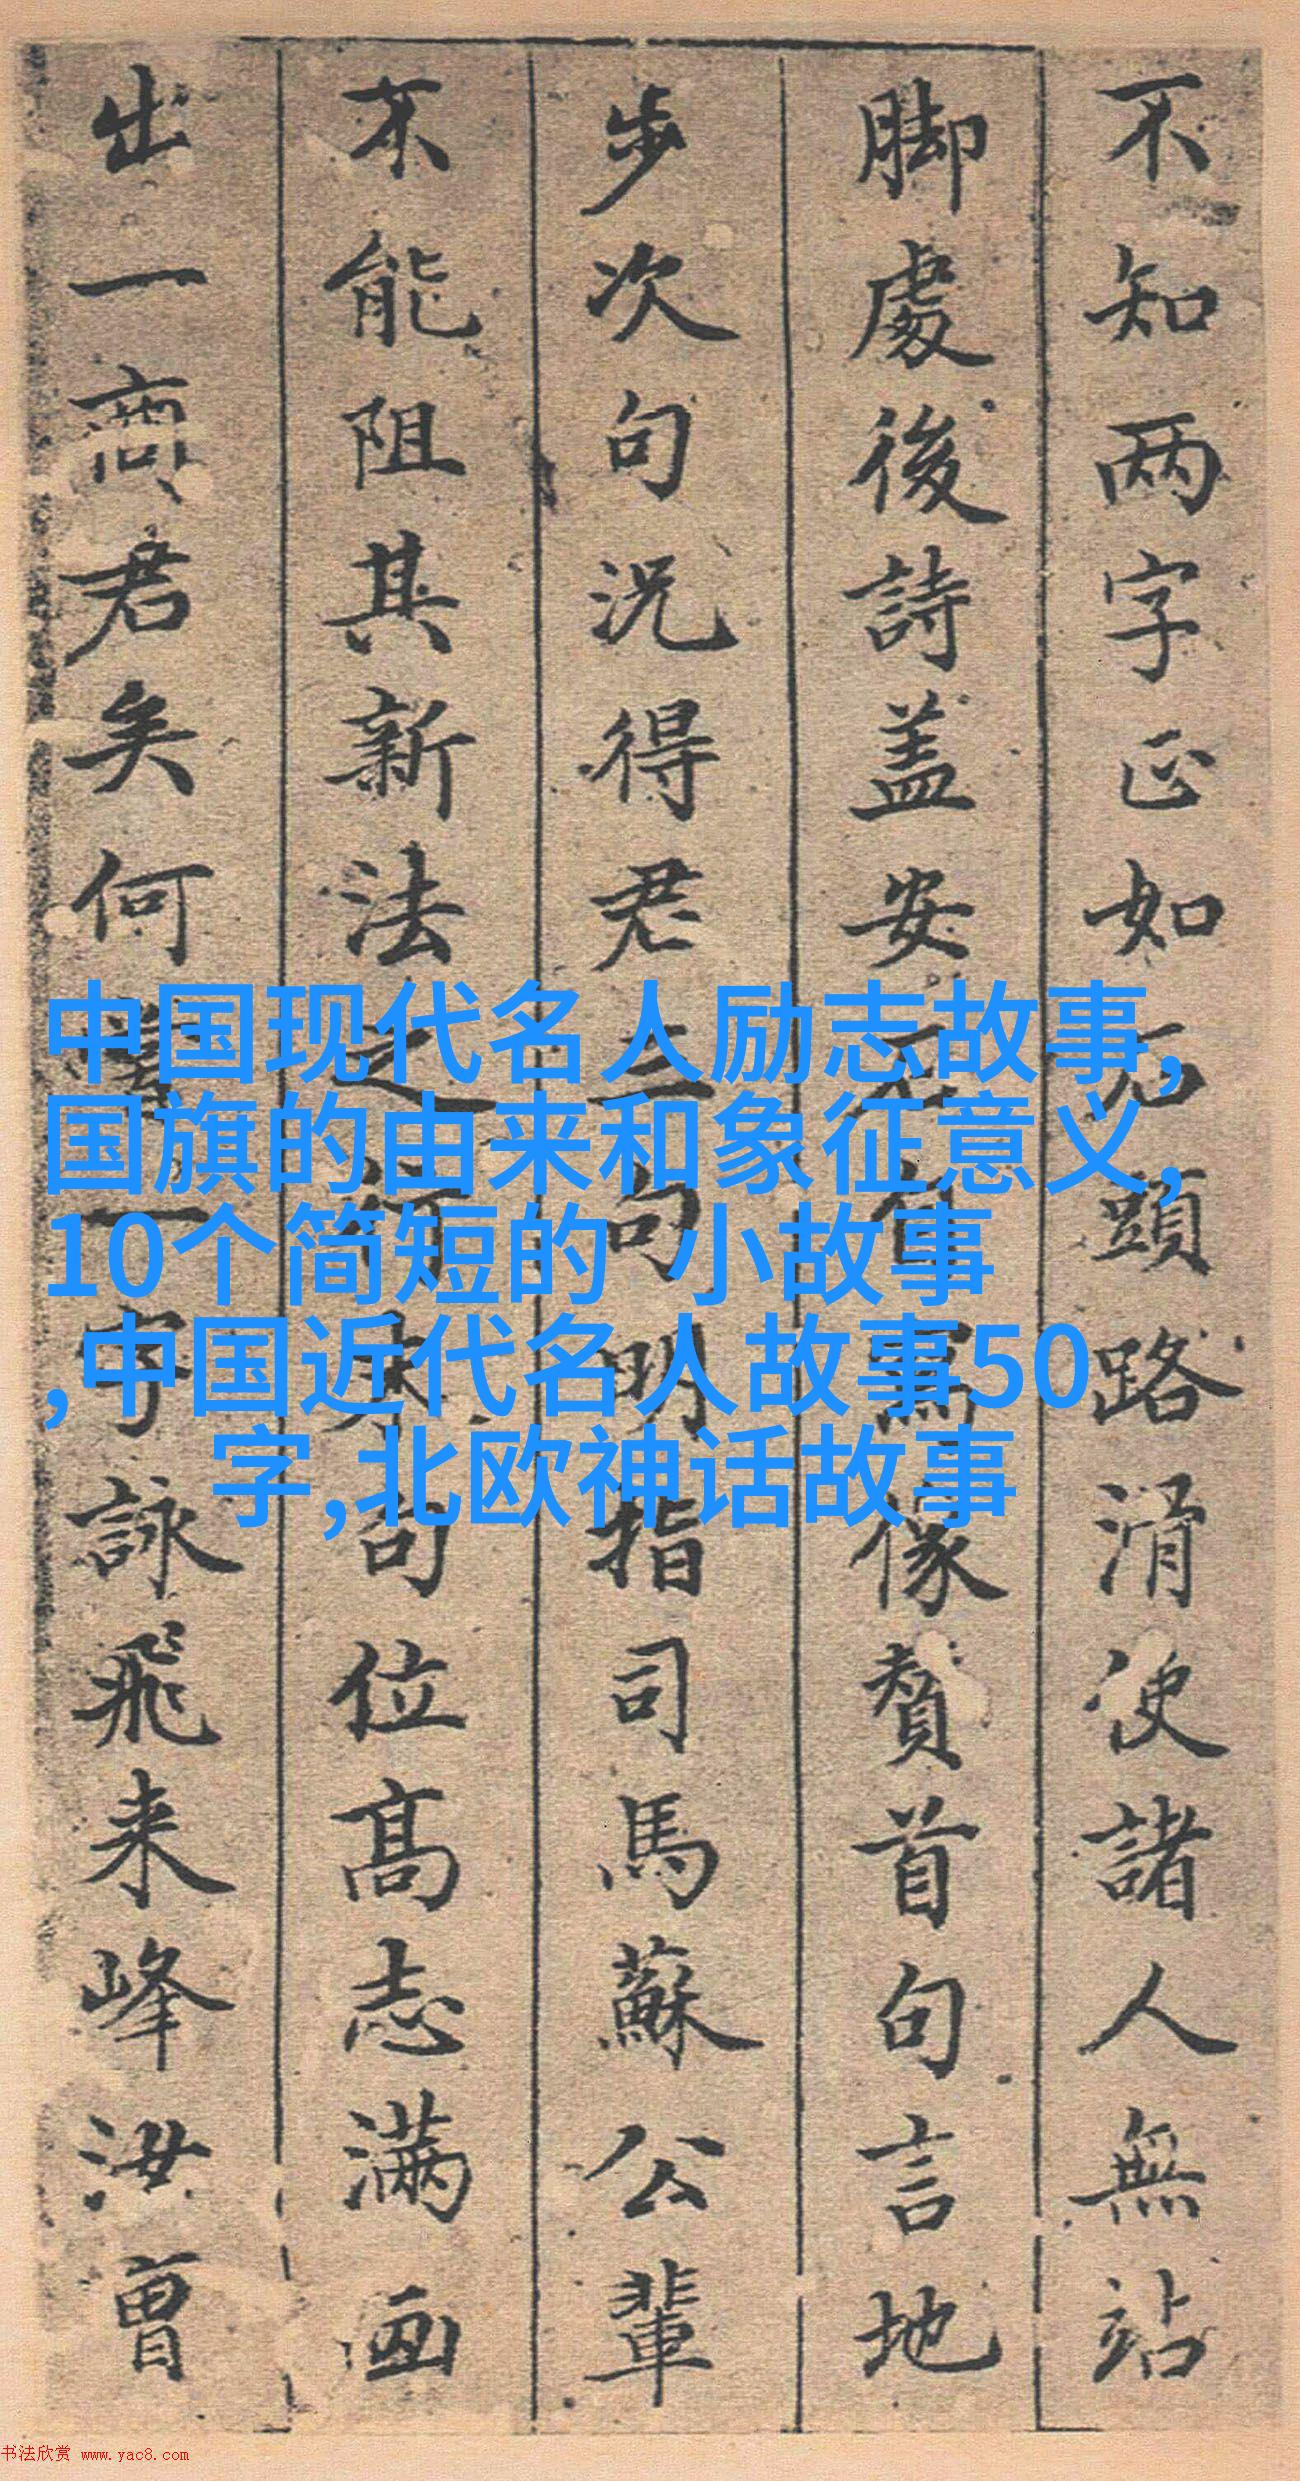 不知两字正如石頭路滑使諸人無站
脚處後詩盖安石自寫像贊首句言地
步次句况得君三句明指司馬蘇公輩
不能阻其新法之行末句位高志满画
出一商君矣何
一字詠飛来峰汝曾
中国现代名人励志故事,
国旗的由来和象征意义,
10个简短的 小故事
,中国近代名人故事50
字,北欧神话故事
书法欣赏 www.yac8.com